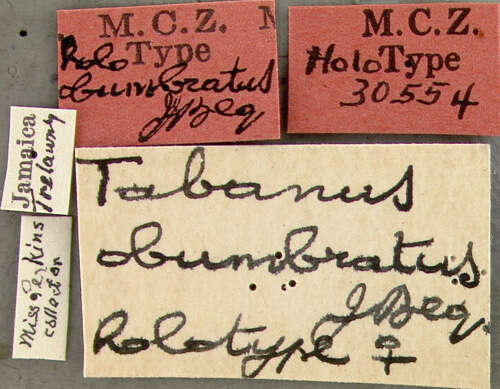 M.C.Z.
Holo Type
obumbratus
JBeq
M.C.Z.
Holo Type
30554
Jamaica
Trelawny
Miss Perkins
collection
Tabanus
obumbratus
JBeq.
Holotype ♀